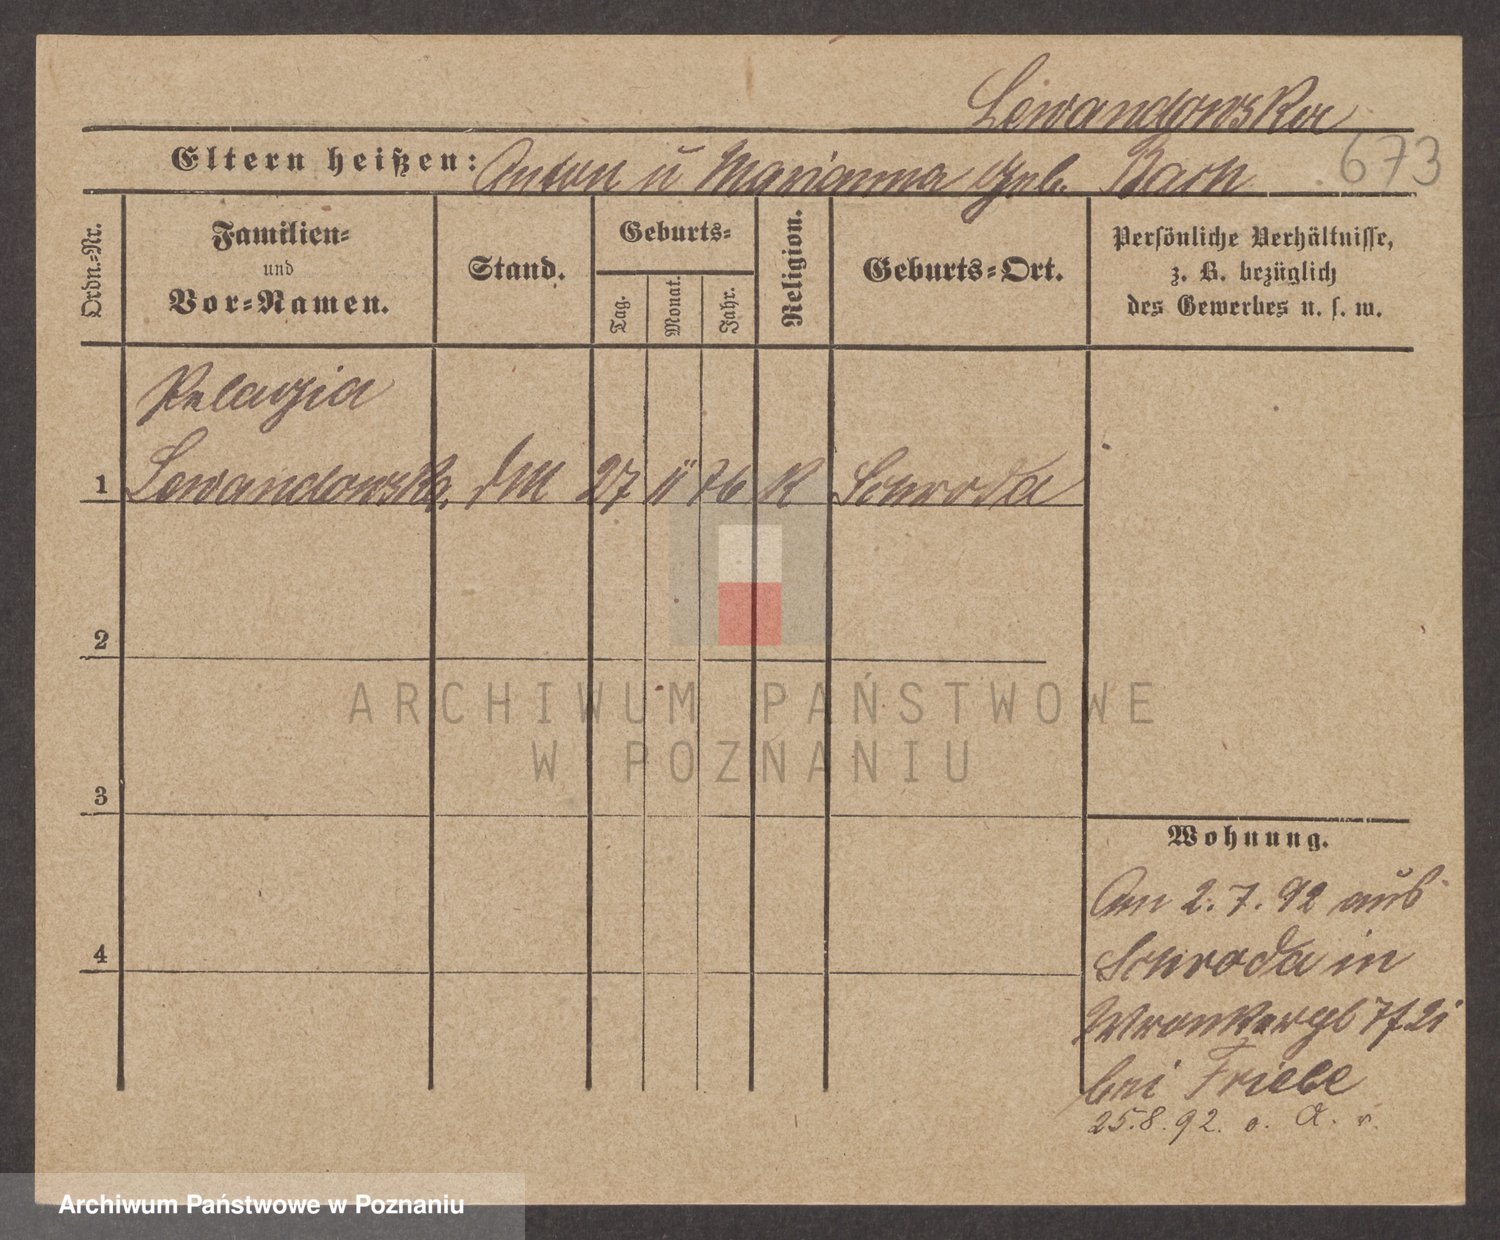 Lewandowska
Eltern heißen: Anton u Marianna geb. Bach
673
Ordn.-Nr.
Familien-
und
Vor-Namen.
Stand.
Geburts-
Tag.
Monat.
Jahr.
Religion.
Geburts-Ort.
Persönliche Verhältnisse,
z. B. bezüglich
des Gewerbes u. s. w.
Pelagia
1 Lewandowska 27 11 76 K Schroda
2
3
4
Wohnung.
Am 2.7.92 aus
Schroda in
bei Friebe
25.8.92. o. A.
ARCHIWUM PAŃSTWOWE
W POZNANIU
Archiwum Państwowe w Poznaniu